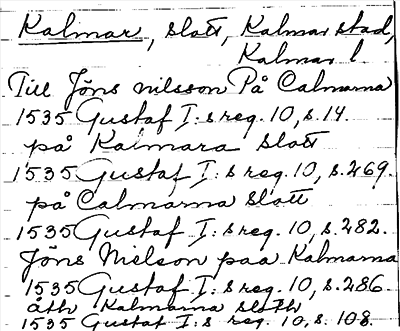 Kalmar, slott, Kalmar stad,
Kalmar l.
Till Jöns nilsson På Calmarna
1535 Gustaf I:s reg. 10, s. 14.
på Kalmara slott
1535 Gustaf I:s reg. 10, s. 269.
på Calmarna slott
1535 Gustaf I:s reg. 10, s. 282.
Jöns Nielson paa Kalmarna
1535 Gustaf I:s reg. 10, s. 286.
åth Kalmarna sloth
1535 Gustaf I:s reg. 10, s. 108.